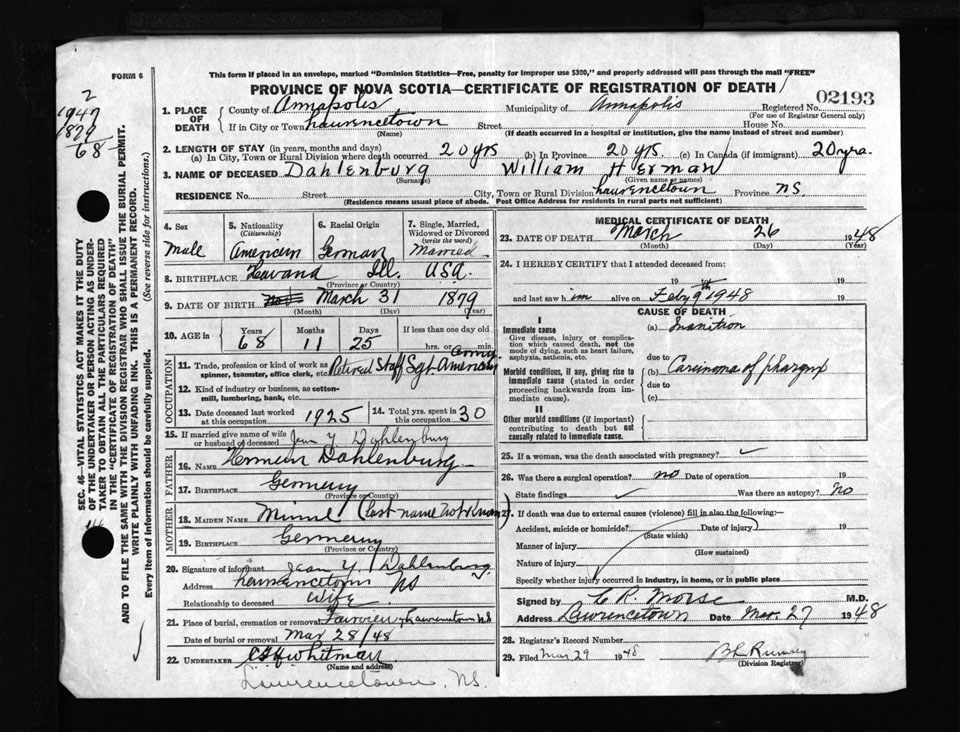 This form if placed in an envelope, marked "Dominion Statistics—Free, penalty for improper use $300," and properly addressed will pass through the mail "FREE"
FORM 6
PROVINCE OF NOVA SCOTIA—CERTIFICATE OF REGISTRATION OF DEATH
02193
2
1947
1879
68
1. PLACE OF DEATH County of Annapolis Municipality of Annapolis Registered No.
(For use of Registrar General only)
If in City or Town Lawrencetown Street House No.
(Name) (If death occurred in a hospital or institution, give the name instead of street and number)
2. LENGTH OF STAY (in years, months and days)
(a) In City, Town or Rural Division where death occurred 20 yrs (b) In Province 20 yrs (c) In Canada (if immigrant) 20 yrs.
3. NAME OF DECEASED Dahlenburg William Herman
(Surname) (Given name or names)
RESIDENCE No. Street City, Town or Rural Division Lawrencetown Province NS
(Residence means usual place of abode. Post Office Address for residents in rural parts not sufficient)
4. Sex Male
5. Nationality (Citizenship) American
6. Racial Origin German
7. Single, Married, Widowed or Divorced (write the word) Married
8. BIRTHPLACE Havana Ill. USA.
(Province or Country)
9. DATE OF BIRTH March 31 1879
(Month) (Day) (Year)
10. AGE in Years 68 Months 11 Days 25 If less than one day
hrs. or min.
OCCUPATION
11. Trade, profession or kind of work as spinner, teamster, office clerk, etc. Retired Staff Sgt American Army
12. Kind of industry or business, as cotton-mill, lumbering, bank, etc.
13. Date deceased last worked at this occupation 1925
14. Total yrs. spent in this occupation 30
15. If married give name of wife or husband of deceased Jean Y Dahlenburg
FATHER
16. NAME Herman Dahlenburg
17. BIRTHPLACE Germany
(Province or Country)
MOTHER
18. MAIDEN NAME Minnie (last name not known)
19. BIRTHPLACE Germany
(Province or Country)
20. Signature of informant Jean Y. Dahlenburg
Address Lawrencetown NS
Relationship to deceased Wife
21. Place of burial, cremation or removal Fairview Lawrencetown NS
Date of burial or removal Mar 28/48
22. UNDERTAKER Whitman
(Name and address)
Lawrencetown, NS.
MEDICAL CERTIFICATE OF DEATH
23. DATE OF DEATH March 26 1948
(Month) (Day) (Year)
24. I HEREBY CERTIFY that I attended deceased from:
19 to 19
and last saw him alive on Feby 9th 1948 19
CAUSE OF DEATH
I
Immediate cause (a) Inanition
Give disease, injury or complication which caused death, not the mode of dying, such as heart failure, asphyxia, asthenia, etc.
due to
Morbid conditions, if any, giving rise to immediate cause (stated in order proceeding backwards from immediate cause). (b) Carcinoma of pharynx
due to
(c)
II
Other morbid conditions (if important) contributing to death but not causally related to immediate cause.
25. If a woman, was the death associated with pregnancy?
26. Was there a surgical operation? no Date of operation 19
State findings Was there an autopsy? No
27. If death was due to external causes (violence) fill in also the following:—
Accident, suicide or homicide? Date of injury 19
(State which)
Manner of injury
(How sustained)
Nature of injury
Specify whether injury occurred in industry, in home, or in public place
Signed by C R Morse M.D.
Address Lawrencetown Date Mar. 27 1948
28. Registrar's Record Number
29. Filed Mar 29 1948
(Division Registrar)
SEC. 46—VITAL STATISTICS ACT MAKES IT THE DUTY
OF THE UNDERTAKER OR PERSON ACTING AS UNDERTAKER TO OBTAIN ALL THE PARTICULARS REQUIRED
IN THE "CERTIFICATE OF REGISTRATION OF DEATH"
AND TO FILE THE SAME WITH THE DIVISION REGISTRAR WHO SHALL ISSUE THE BURIAL PERMIT.
WRITE PLAINLY WITH UNFADING INK. THIS IS A PERMANENT RECORD.
Every item of information should be carefully supplied. (See reverse side for instructions.)